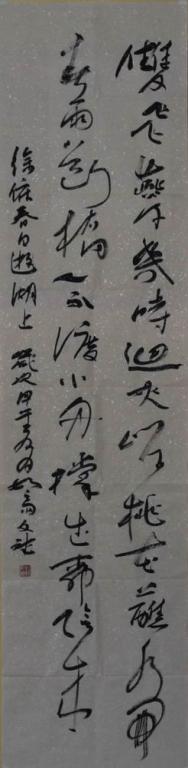 雙飛燕子幾時迴夾岸桃花蘸水開
春雨斷橋人不渡小舟撐出柳陰來
徐俯春日遊湖上 歲次甲午